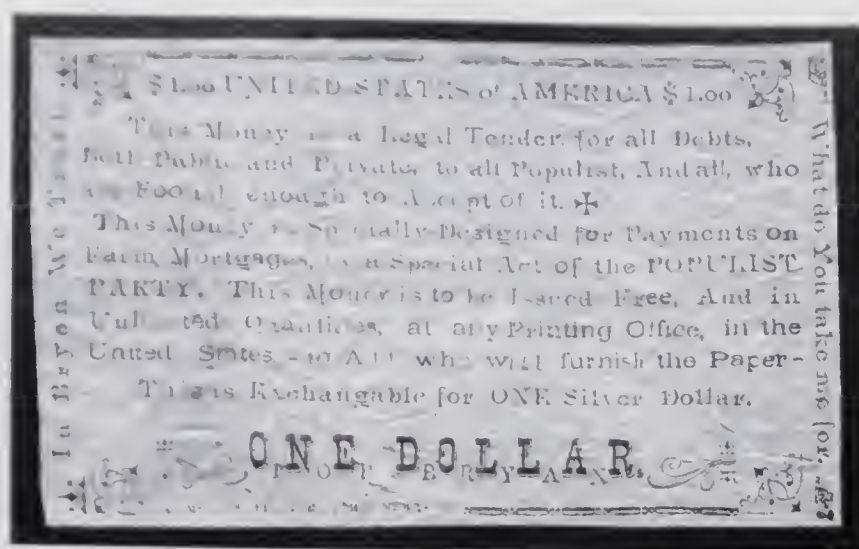 $1.00 UNITED STATES of AMERICA $1.00
This Money is a Legal Tender, for all Debts,
Both Public and Private, to all Populist, And all, who
are Foolish enough to Accept of it.
This Money is Specially Designed for Payments on
Farm Mortgages, by a Special Act of the POPULIST
PARTY. This Money is to be Issued Free, And in
Quantities, at any Printing Office, in the
United States - to All who will furnish the Paper-
This is Exchangable for ONE Silver Dollar.
ONE DOLLAR
B R Y A N
In Bryen We Trust
What do You take me for.